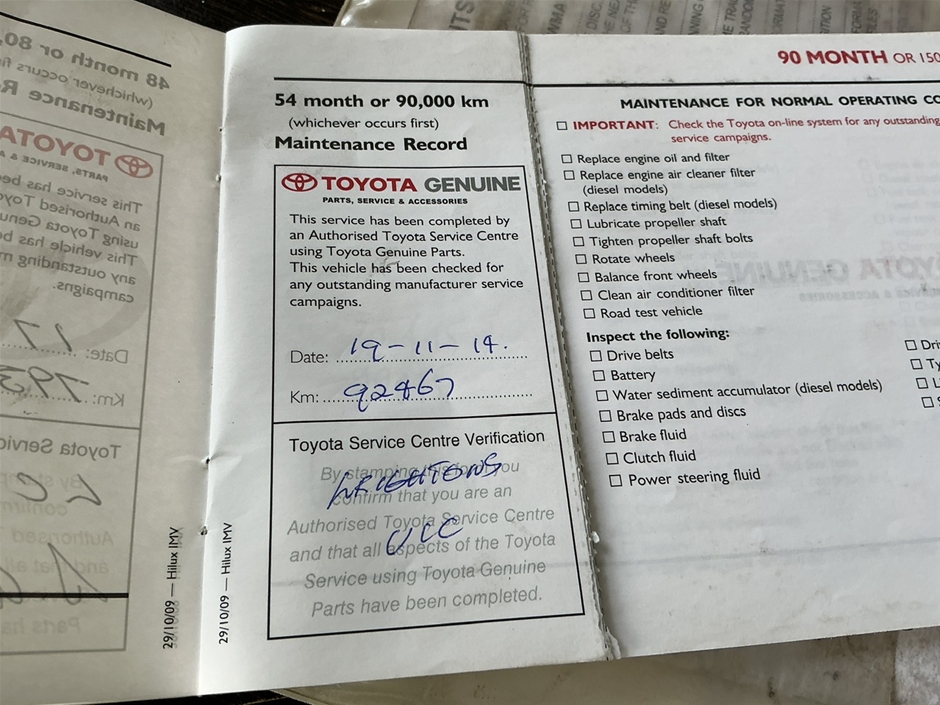 54 month or 90,000 km
(whichever occurs first)
Maintenance Record
TOYOTA GENUINE
PARTS, SERVICE & ACCESSORIES
This service has been completed by
an Authorised Toyota Service Centre
using Toyota Genuine Parts.
This vehicle has been checked for
any outstanding manufacturer service
campaigns.
Date: 19-11-14.
Km: 92467
Toyota Service Centre Verification
By stamping this form you
confirm that you are an
Authorised Toyota Service Centre
and that all aspects of the Toyota
Service using Toyota Genuine
Parts have been completed.
29/10/09 — Hilux IMV
29/10/09 — Hilux IMV
90 MONTH OR 150
MAINTENANCE FOR NORMAL OPERATING CO
IMPORTANT: Check the Toyota on-line system for any outstanding
service campaigns.
Replace engine oil and filter
Replace engine air cleaner filter
(diesel models)
Replace timing belt (diesel models)
Lubricate propeller shaft
Tighten propeller shaft bolts
Rotate wheels
Balance front wheels
Clean air conditioner filter
Road test vehicle
Inspect the following:
Drive belts
Battery
Water sediment accumulator (diesel models)
Brake pads and discs
Brake fluid
Clutch fluid
Power steering fluid
Dri
Ty